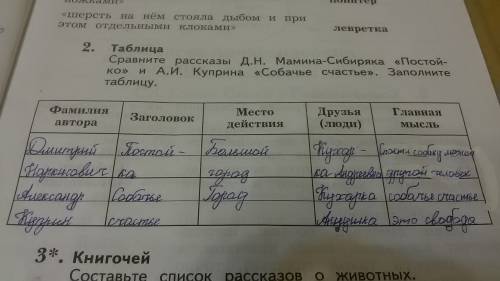 ножками»
пойнтер
«шерсть на нём стояла дыбом и при
этом отдельными клоками»
левретка
2. Таблица
Сравните рассказы Д.Н. Мамина-Сибиряка «Постой-
ко» и А.И. Куприна «Собачье счастье». Заполните
таблицу.
Фамилия автора Заголовок Место действия Друзья (люди) Главная мысль
Дмитрий Постой- Большой Кухар-
Наркисович ка город ка Андреевна другой человек
Александр Собачье Город Кухарка собачье счастье
Куприн счастье Аннушка это свобода
3*. Книгочей
Составьте список рассказов о животных.